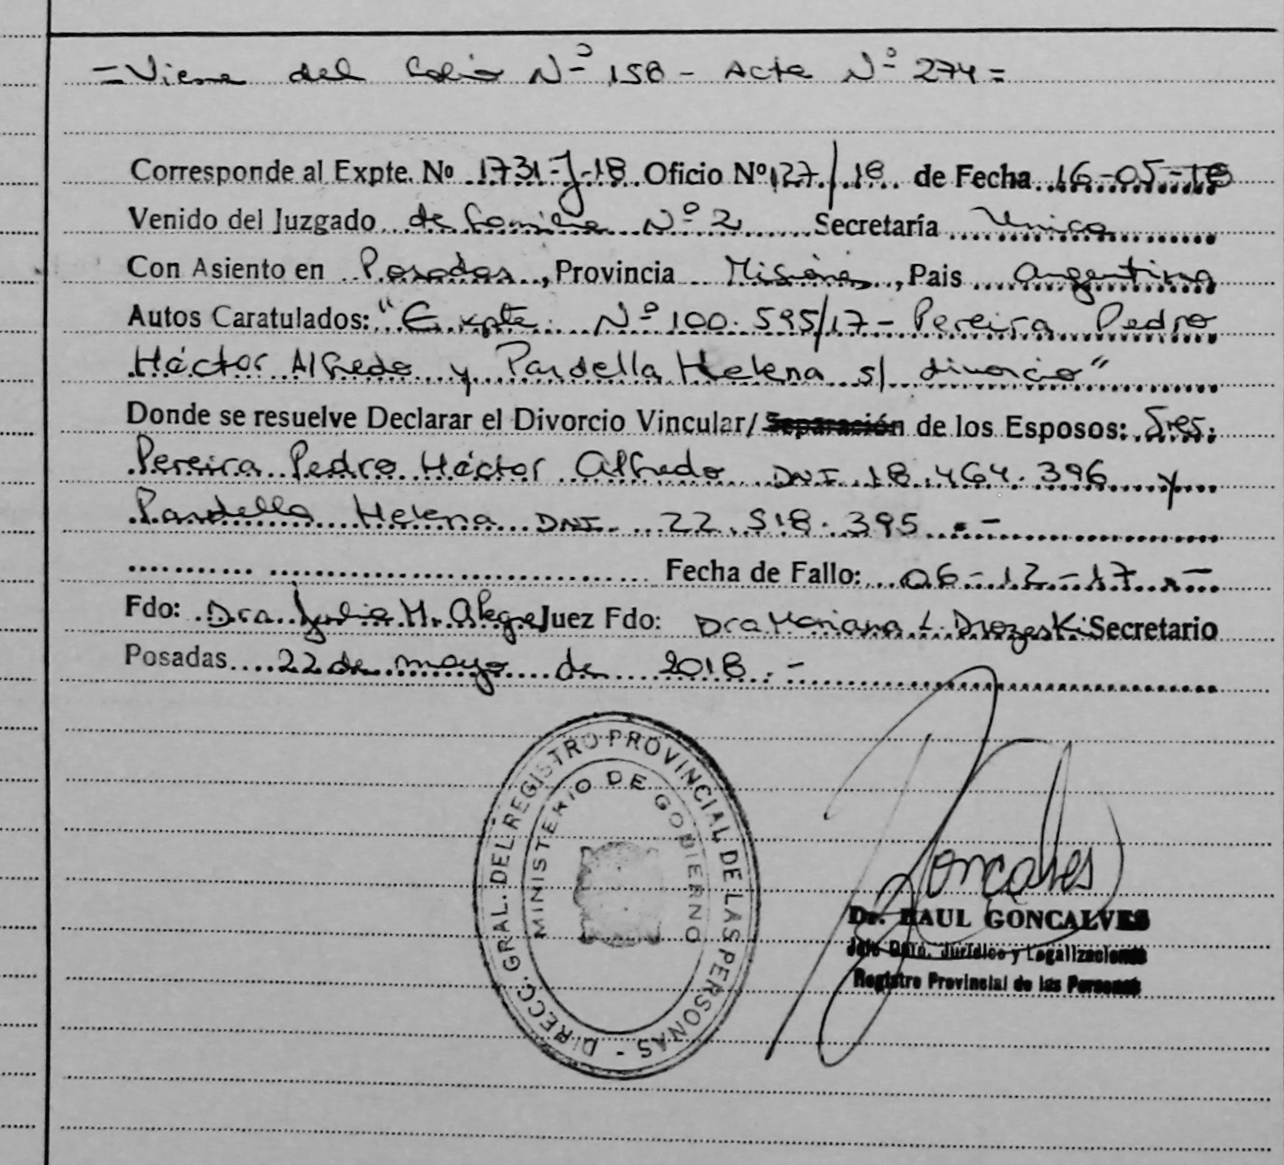 =Viene del Folio Nº 158 - Acta Nº 274=
Corresponde al Expte. Nº 1731-J-18 Oficio Nº 127/18 de Fecha 16-05-18
Venido del Juzgado de Familia Nº 2 Secretaría Unica
Con Asiento en Posadas, Provincia Misiones, Pais Argentina
Autos Caratulados: "Expte. Nº 100.595/17 - Pereira Pedro
Héctor Alfredo y Pardella Helena s/ divorcio"
Donde se resuelve Declarar el Divorcio Vincular/Separación de los Esposos: Sres.
Pereira Pedro Héctor Alfredo DNI 18.464.396 y
Pardella Helena DNI. 22.518.395.-
Fecha de Fallo: 06-12-17.-
Fdo: Dra. Julia M. Alegre Juez Fdo: Dra Mariana L. Drozeski Secretario
Posadas 22 de mayo de 2018.-
DIRECC. GRAL. DEL REGISTRO PROVINCIAL DE LAS PERSONAS -
MINISTERIO DE GOBIERNO
Goncalves
Dr. RAUL GONCALVES
Jefe Dpto. Jurídico y Legalizaciones
Registro Provincial de las Personas